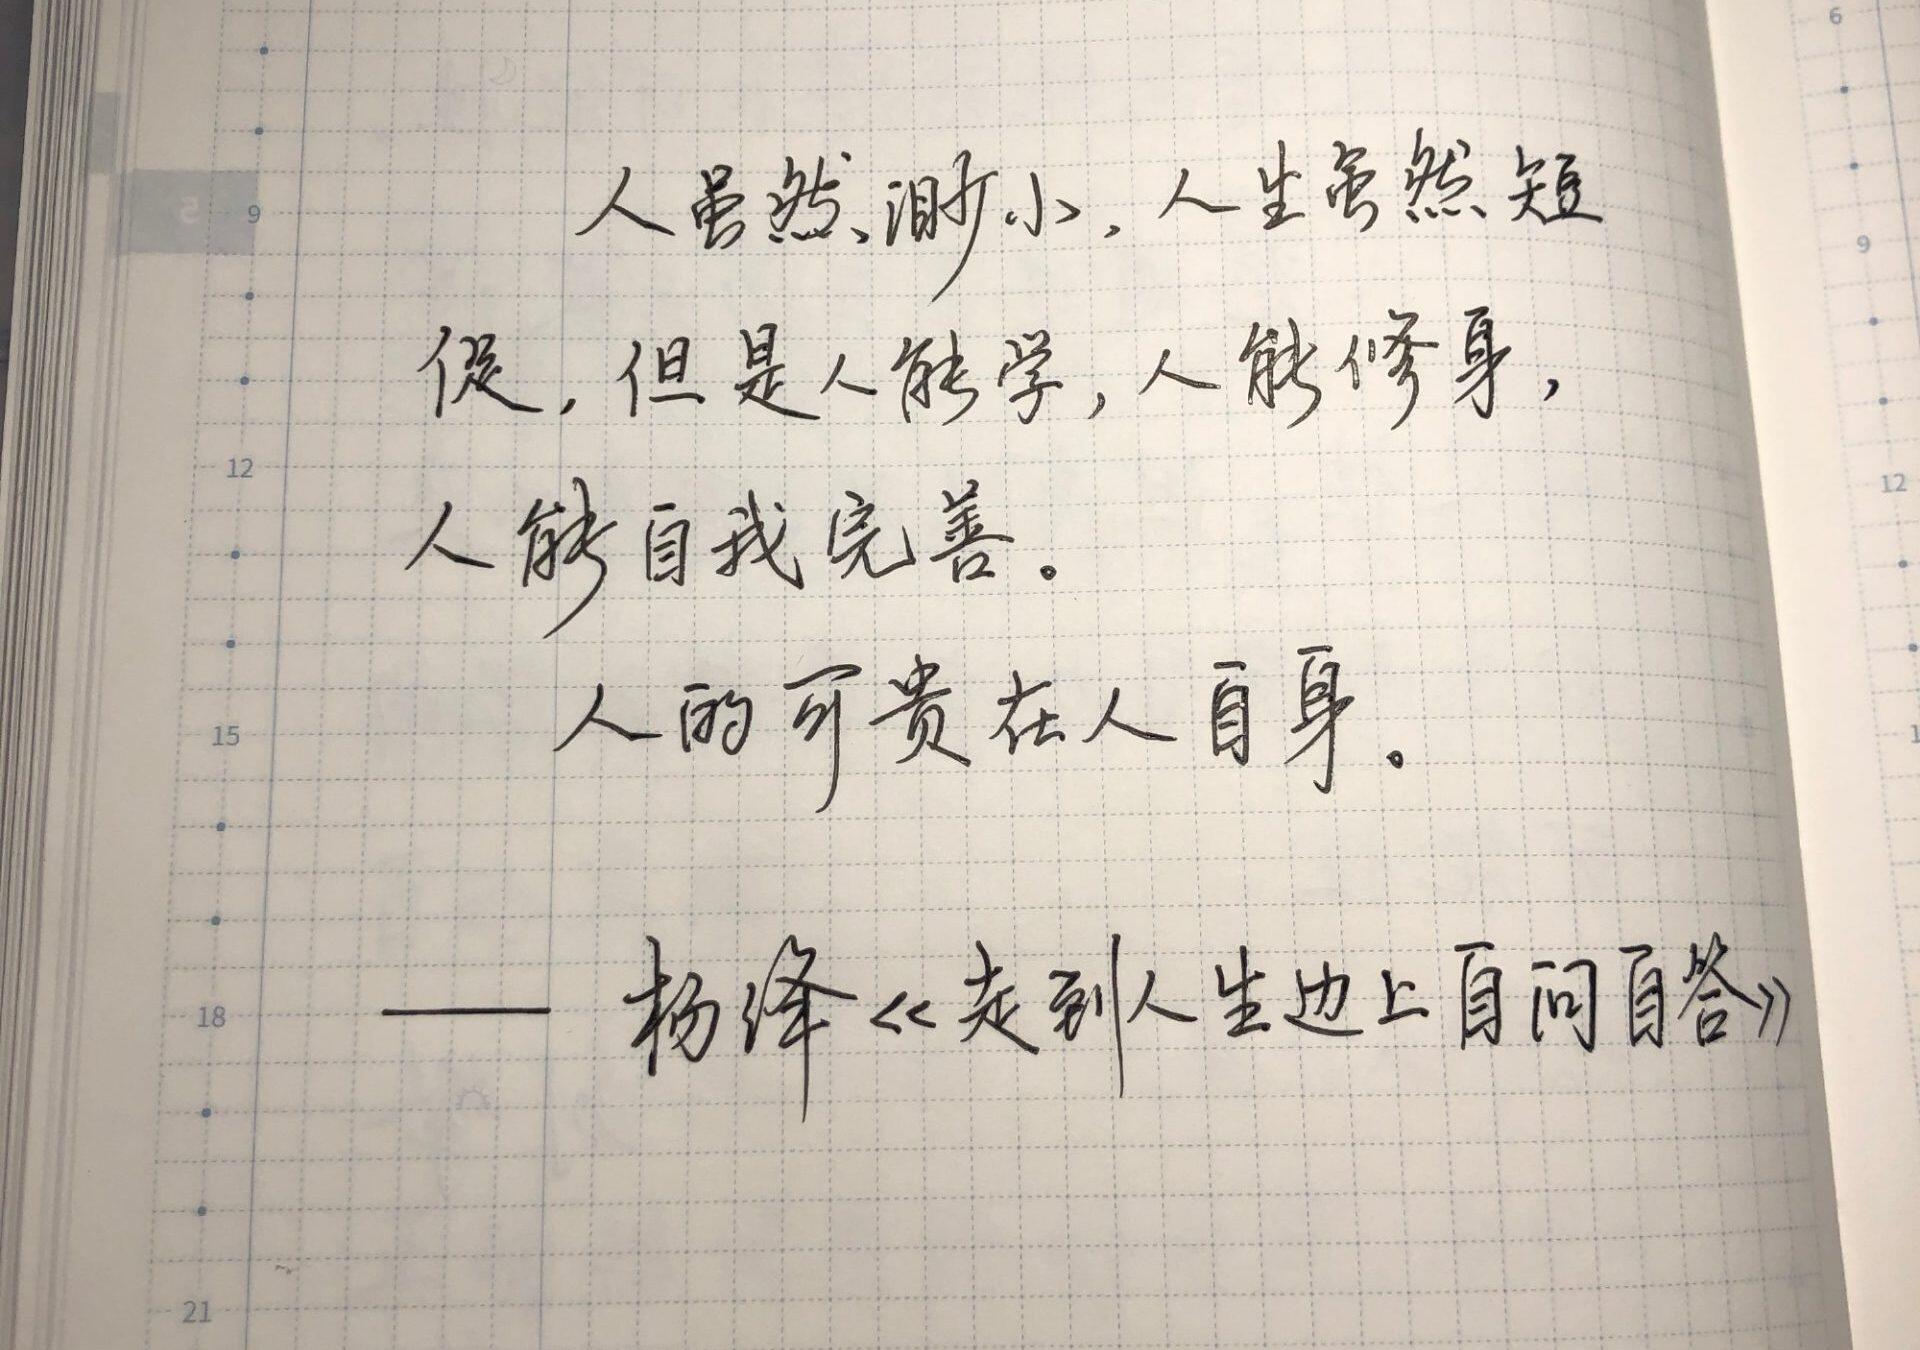 人虽然渺小，人生虽然短
促，但是人能学，人能修身，
人能自我完善。
人的可贵在人自身。
——杨绛《走到人生边上自问自答》
9
12
15
18
21
6
9
12